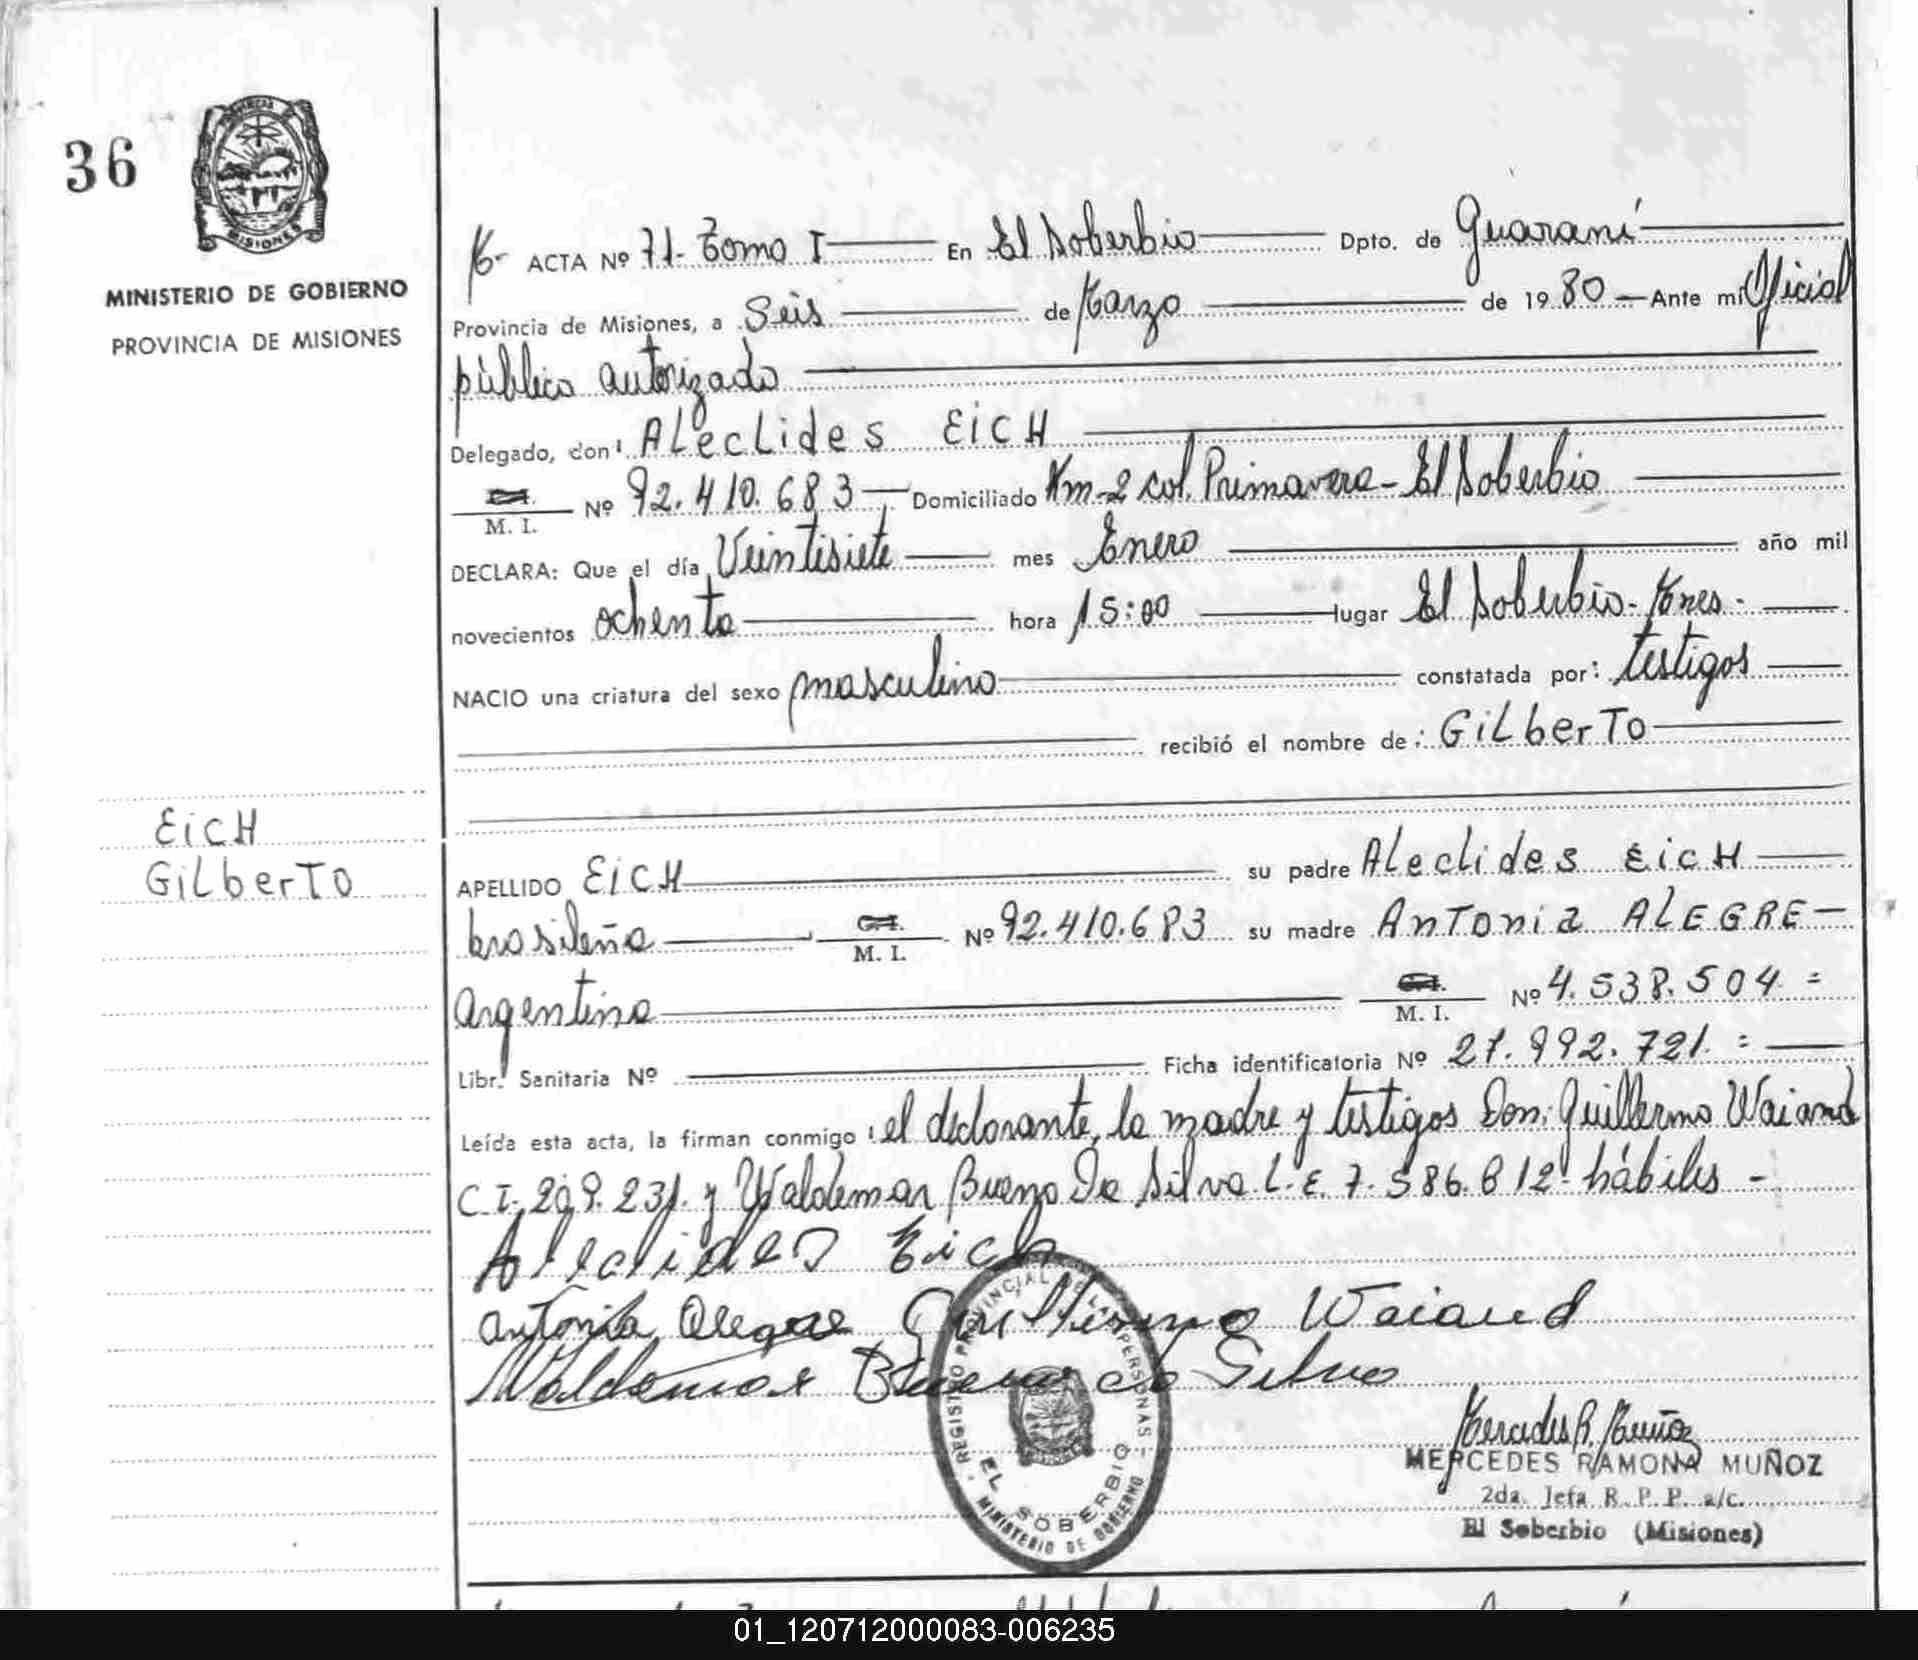 36
MISIONES
MINISTERIO DE GOBIERNO
PROVINCIA DE MISIONES
ACTA Nº 71- Tomo I En El Soberbio Dpto. de Guaraní
Provincia de Misiones, a Seis de Marzo de 1980 Ante mí Oficial
público autorizado
Delegado, don: Aleclides EicH
M. I. Nº 92.410.683 Domiciliado Km-2 col. Primavera - El Soberbio
DECLARA: Que el día Veintisiete mes Enero año mil
novecientos ochenta hora 15:00 lugar El Soberbio - Mnes -
NACIO una criatura del sexo masculino constatada por: testigos
recibió el nombre de: GilberTo
EicH
GilberTo
APELLIDO EicH su padre Aleclides EicH
brasileña C.I. M. I. Nº 92.410.683 su madre AnTonia ALEGRE-
Argentina M. I. Nº 4.538.504 =
Libr. Sanitaria Nº Ficha identificatoria Nº 27.992.721 =
Leída esta acta, la firman conmigo: el declarante, la madre y testigos Don: Guillermo Waiand
C.I. 209.231. y Waldemar Bueno Da Silva L.E. 7.586.812- hábiles -
Aleclides Eich
Antonia Alegre Guillermo Waiand
Waldemar Bueno da Silva
REGISTRO PROVINCIAL DE LAS PERSONAS -
EL SOBERBIO
MINISTERIO DE GOBIERNO
Mercedes R. Muñoz
MERCEDES RAMONA MUÑOZ
2da. Jefa R. P. P. a/c.
El Soberbio (Misiones)
01_120712000083-006235